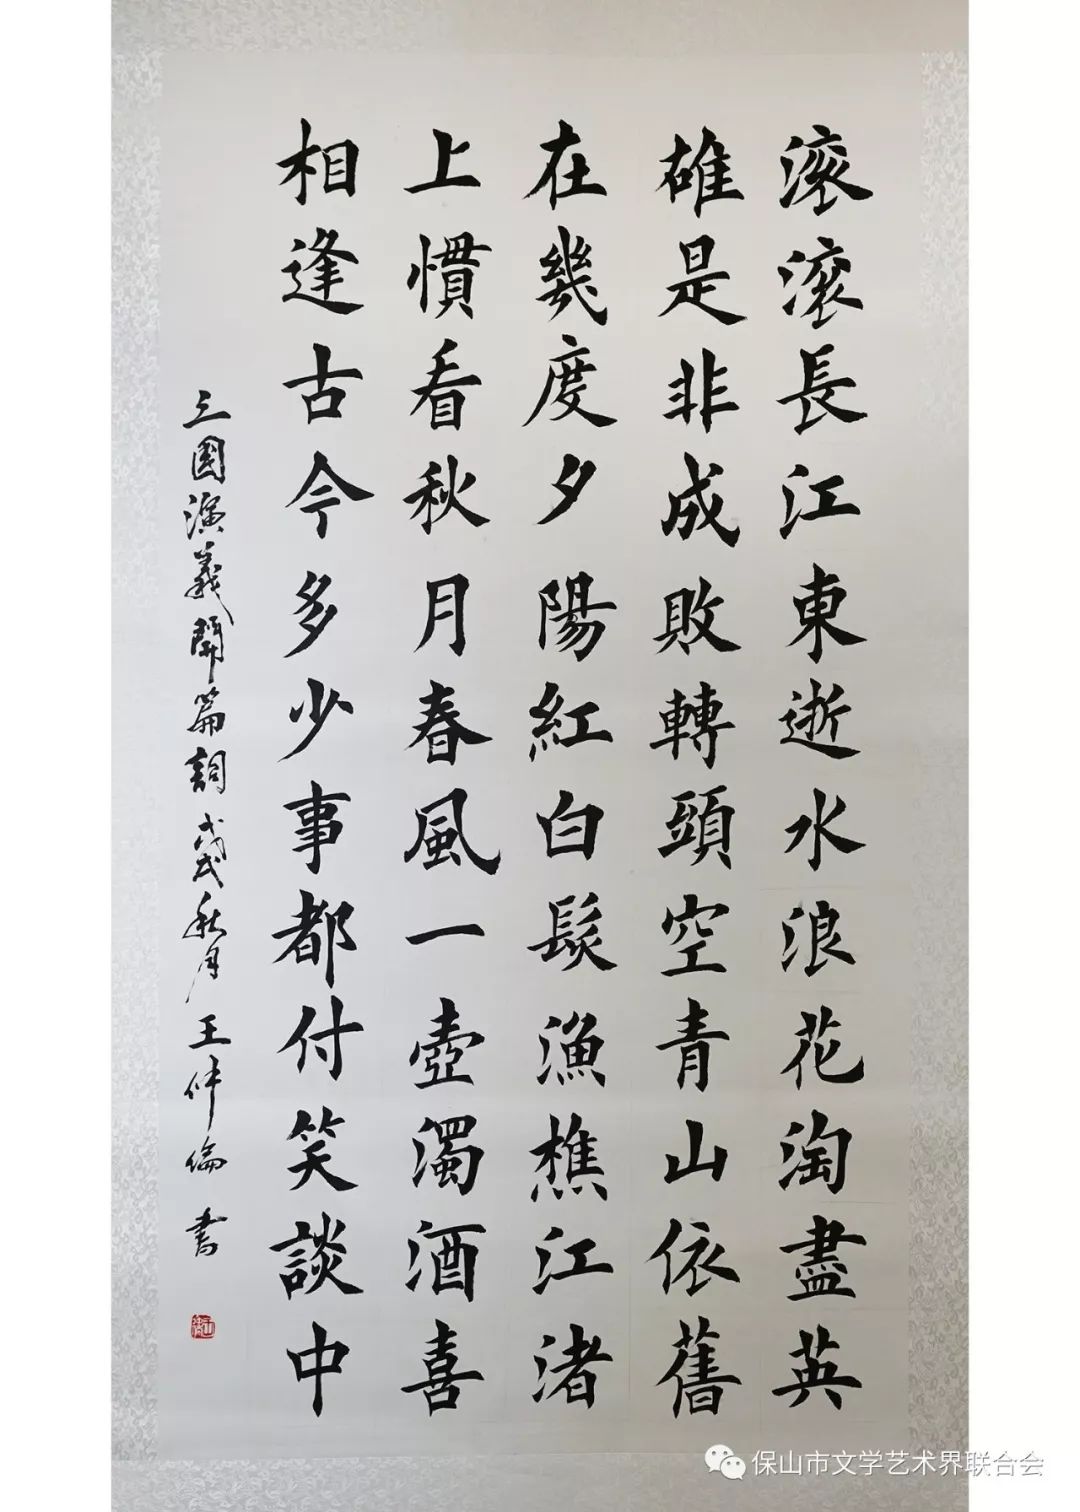 滚滚長江東逝水浪花淘盡英
雄是非成敗轉頭空青山依舊
在幾度夕陽紅白髮漁樵江渚
上慣看秋月春風一壺濁酒喜
相逢古今多少事都付笑談中
三國演義開篇詞戊戌秋月王仲倫書
保山市文学艺术界联合会